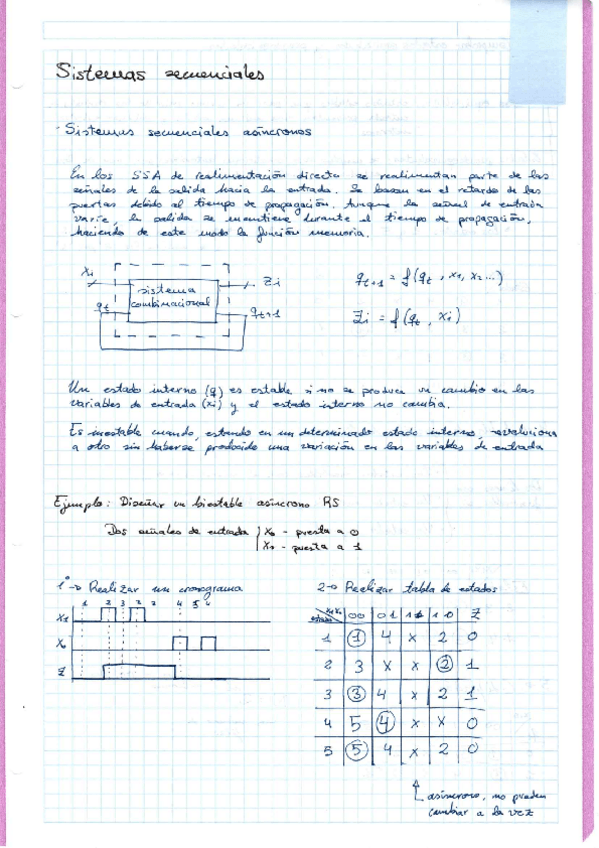 Sistemas secuenciales
- Sistemas secuenciales asíncronos
En los SSA de realimentación directa se realimentan parte de las
señales de la salida hacia la entrada. Se basan en el retardo de las
puertas debido al tiempo de propagación. Aunque la señal de entrada
varíe, la salida se mantiene durante el tiempo de propagación,
haciendo de este modo la función memoria.
Xi
sistema
combinacional
Zi
qt
qt+1
qt+1 = f(qt, x1, x2...)
Zi = f(qt, xi)
Un estado interno (q) es estable si no se produce un cambio en las
variables de entrada (xi) y el estado interno no cambia.
Es inestable cuando, estando en un determinado estado interno, evoluciona
a otro sin haberse producido una variación en las variables de entrada
Ejemplo: Diseñar un biestable asíncrono RS
Dos señales de entrada X0 - puesta a 0
X1 - puesta a 1
1º → Realizar un cronograma
1 2 3 2 3 4 5 4
X1
X0
Z
2 → Realizar tabla de estados
estado X1X0 00 01 11 10 Z
1 1 4 x 2 0
2 3 x x 2 1
3 3 4 x 2 1
4 5 4 x x 0
5 5 4 x 2 0
asíncrono, no pueden
cambiar a la vez